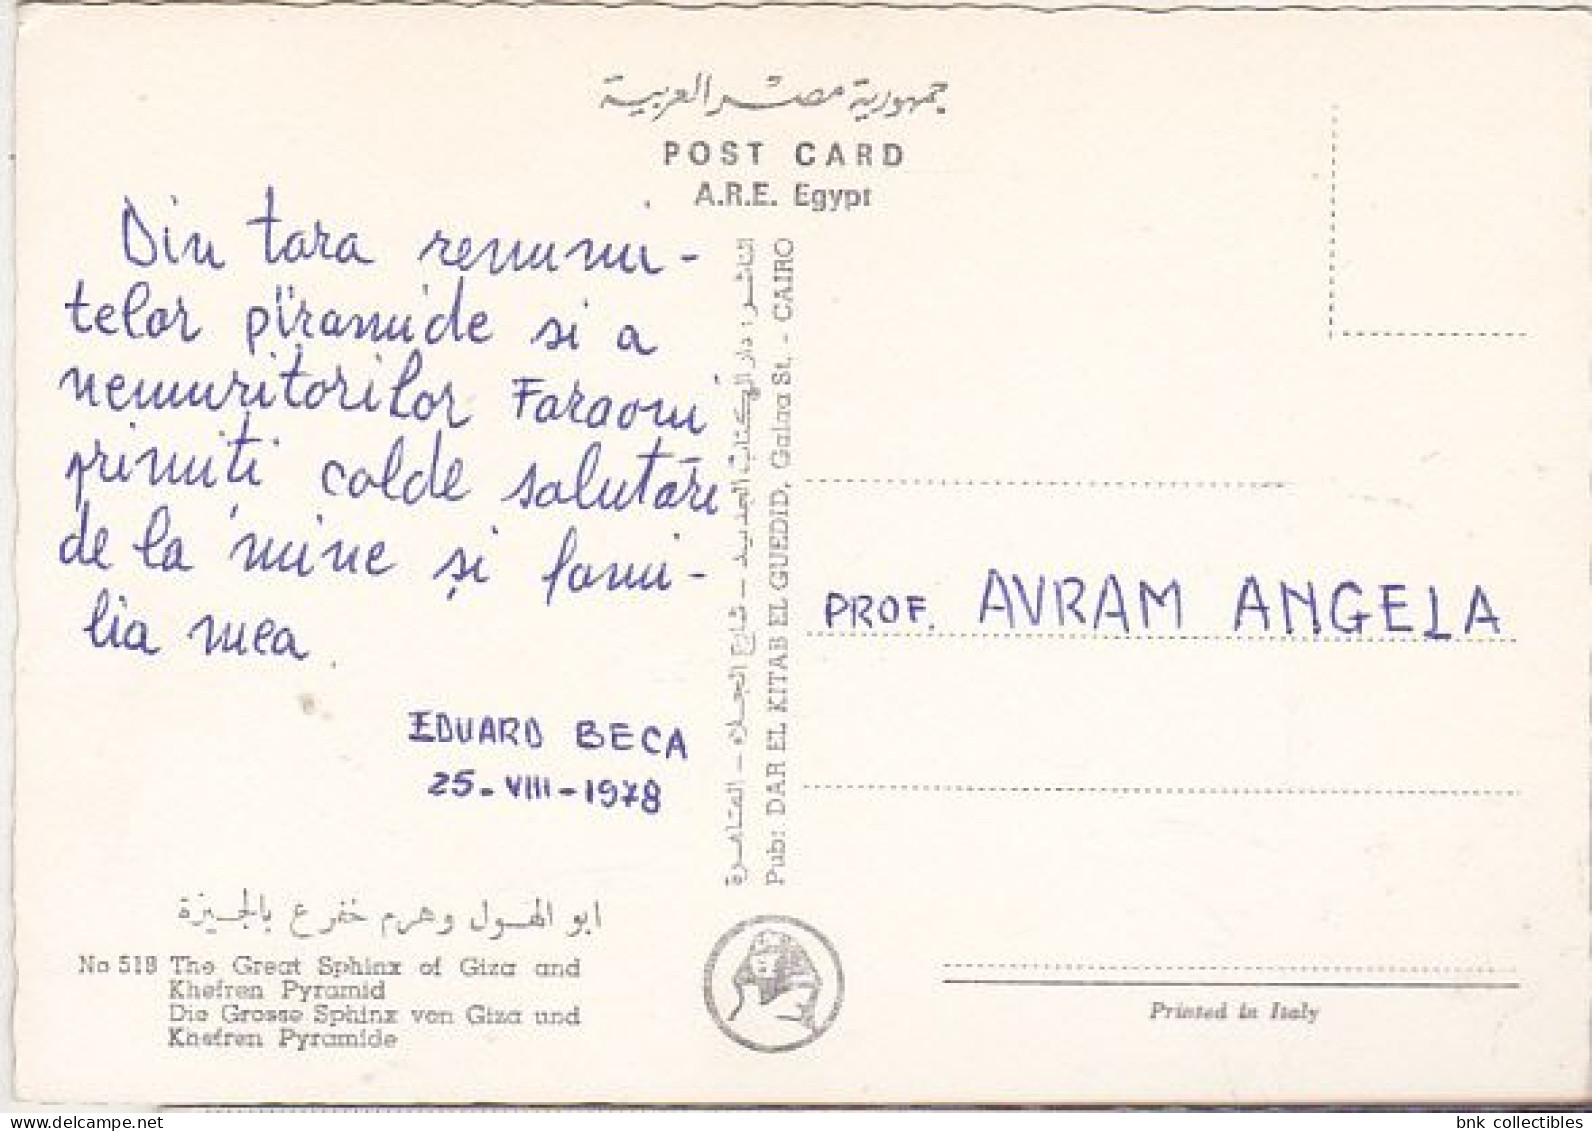 جمهورية مصر العربية
POST CARD
A.R.E. Egypt
Din tara renumi-
telor piramide si a
nemuritorilor Faraoni
primiti calde salutări
de la mine și fami-
lia mea.
EDUARD BECA
25-VIII-1978
ابو الهول وهرم خفرع بالجيزة
No 518 The Great Sphinx of Giza and
Khefren Pyramid
Die Grosse Sphinx von Giza und
Khefren Pyramide
الناشر: دار الكتاب الجديد - شارع الجلاء - القاهرة
Pub: DAR EL KITAB EL GUEDID, Galaa St. - CAIRO
PROF. AVRAM ANGELA
Printed in Italy
bnk collectibles